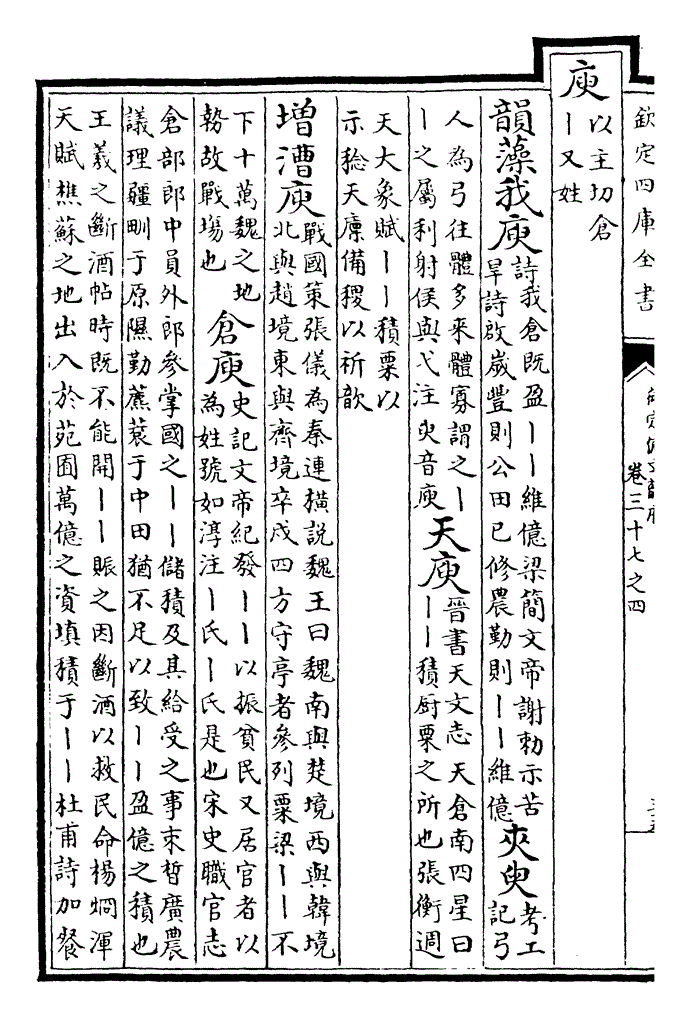 欽定四庫全書
卷三十七之四
庾以主切倉
丨又姓
韻藻我庾詩我倉既盈丨丨維億梁簡文帝謝勅示苦
旱詩啟歲豐則公田已修農勤則丨丨維億夾臾考工
記弓
人為弓往體多來體寡謂之丨
丨之屬利射侯與弋注臾音庾天庾晉書天文志天倉南四星曰
丨丨積厨粟之所也張衡週
天大象賦丨丨積粟以
示稔天廩備稷以祈歆
増漕庾戰國策張儀為秦連横説魏王曰魏南與楚境西與韓境
北與趙境東與齊境卒戍四方守亭者參列粟梁丨丨不
下十萬魏之地
勢故戰塲也倉庾史記文帝紀發丨丨以振貧民又居官者以
為姓號如淳注丨氏丨氏是也宋史職官志
倉部郎中員外郎參掌國之丨丨儲積及其給受之事束晳廣農
議理疆甽于原隰勤藨蔉于中田猶不足以致丨丨盈億之積也
王羲之斷酒帖時既不能開丨丨賑之因斷酒以救民命楊烱渾
天賦樵蘇之地出入於苑囿萬億之資填積于丨丨杜甫詩加餐